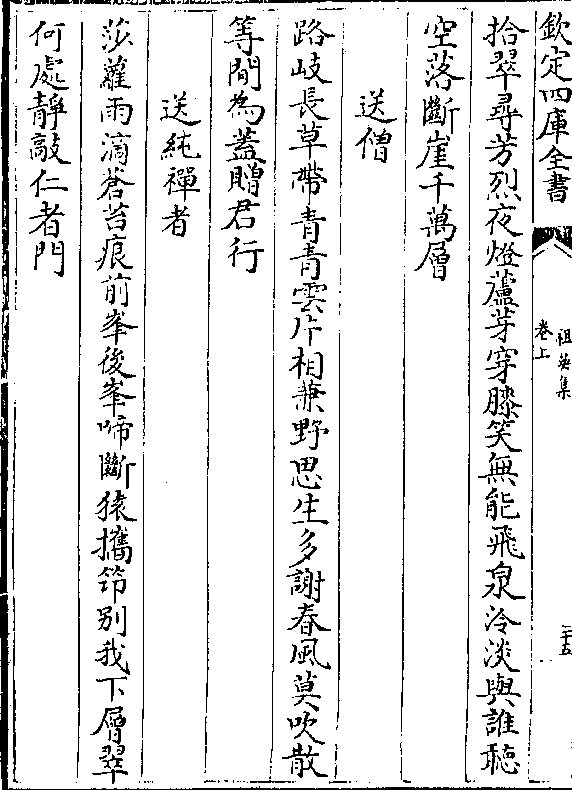 欽定四庫全書
祖英集
卷上
二十五
拾翠尋芳烈夜燈蘆芽穿膝笑無能飛泉冷淡與誰聴
空落斷崖千萬層
送僧
路岐長草帶青青雲片相兼野思生多謝春風莫吹散
等閒為蓋贈君行
送純禪者
莎蘿雨滴蒼苔痕前峯後峯啼斷猿攜笻別我下層翠
何處靜敲仁者門